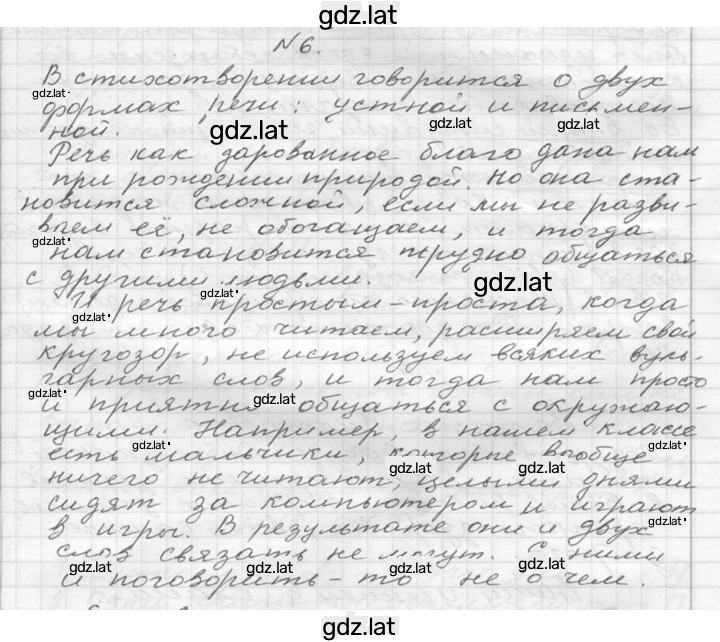 gdz.lat
N6.
В стихотворении говорится о двух
gdz.lat
формах речи: устной и письмен-
gdz.lat gdz.lat
ной. gdz.lat
Речь как дарованное благо дана нам
при рождении природой. Но она ста-
новится сложной, если мы не разви-
ваем её, не обогащаем, и тогда
gdz.lat
нам становится трудно общаться
с другими людьми. gdz.lat gdz.lat
И речь простым-проста, когда
gdz.lat
мы много читаем, расширяем свой
кругозор, не используем всяких вуль-
гарных слов, и тогда нам просто
gdz.lat gdz.lat
и приятно общаться с окружаю-
щими. Например, в нашем классе
gdz.lat gdz.lat
есть мальчики, которые вообще
gdz.lat gdz.lat
ничего не читают, целыми днями
сидят за компьютером и играют
gdz.lat
в игры. В результате они и двух
слов связать не могут. С ними
gdz.lat gdz.lat gdz.lat
и поговорить-то не о чем.
gdz.lat